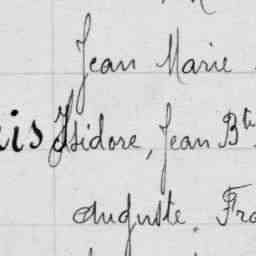 Jean Marie
is Isidore, Jean Bte
Auguste. Fra